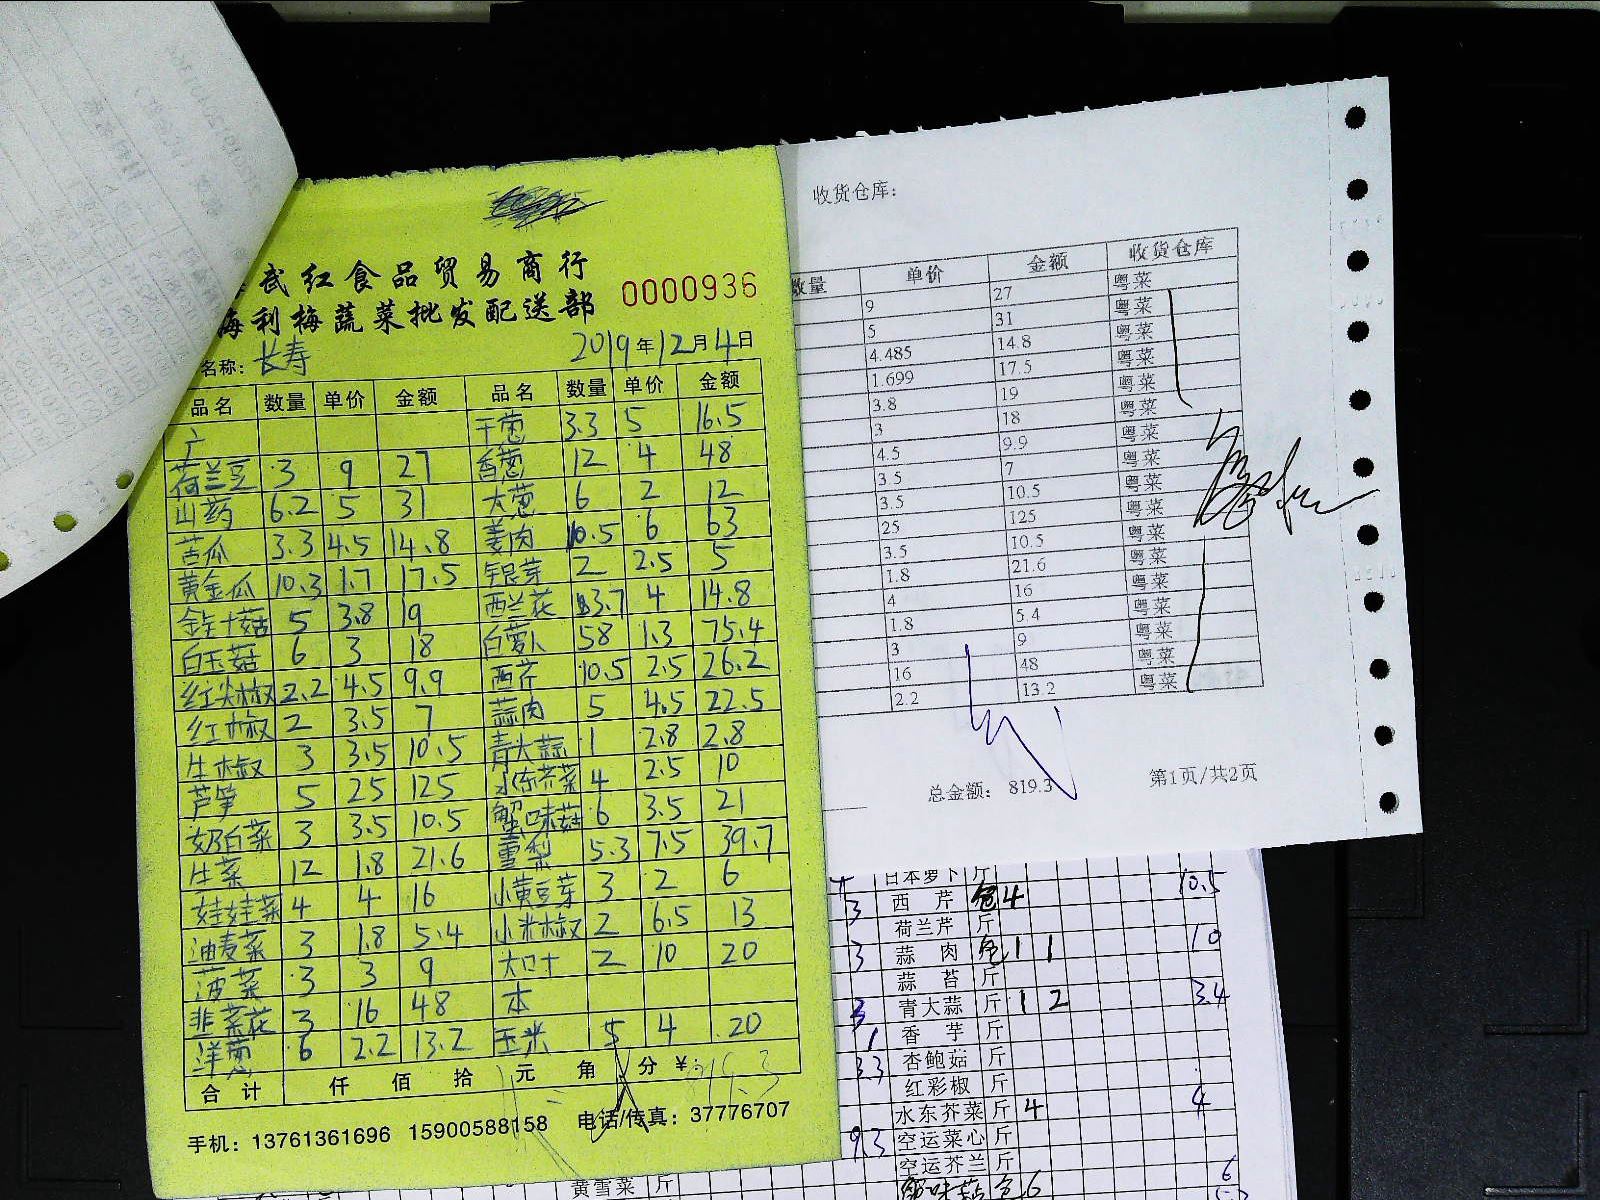 武红食品贸易商行
海利梅蔬菜批发配送部 0000936
名称：长寿 2019年12月4日
品名 数量 单价 金额 品名 数量 单价 金额
广 干葱 3.3 5 16.5
荷兰豆 3 9 27 香葱 12 4 48
山药 6.2 5 31 大葱 6 2 12
苦瓜 3.3 4.5 14.8 姜肉 10.5 6 63
黄金瓜 10.3 1.7 17.5 银芽 2 2.5 5
金针菇 5 3.8 19 西兰花 3.7 4 14.8
白玉菇 6 3 18 白萝卜 58 1.3 75.4
红尖椒 2.2 4.5 9.9 西芹 10.5 2.5 26.2
红椒 2 3.5 7 蒜肉 5 4.5 22.5
牛椒 3 3.5 10.5 青大蒜 1 2.8 2.8
芦笋 5 25 125 水东芥菜 4 2.5 10
奶白菜 3 3.5 10.5 蟹味菇 6 3.5 21
生菜 12 1.8 21.6 雪梨 5.3 7.5 39.7
娃娃菜 4 4 16 小黄豆芽 3 2 6
油麦菜 3 1.8 5.4 小米椒 2 6.5 13
菠菜 3 3 9 大口十 2 10 20
韭菜花 3 16 48 本
洋葱 6 2.2 13.2 玉米 5 4 20
合计 仟 佰 拾 元 角 分 ¥： 819.3
手机：13761361696 15900588158 电话/传真：37776707
收货仓库：
数量 单价 金额 收货仓库
9 27 粤菜
5 31 粤菜
4.485 14.8 粤菜
1.699 17.5 粤菜
3.8 19 粤菜
3 18 粤菜
4.5 9.9 粤菜
3.5 7 粤菜
3.5 10.5 粤菜
25 125 粤菜
3.5 10.5 粤菜
1.8 21.6 粤菜
4 16 粤菜
1.8 5.4 粤菜
3 9 粤菜
16 48 粤菜
2.2 13.2 粤菜
总金额： 819.3 第1页/共2页
日本萝卜 斤
3 西芹 包 4 10.5
荷兰芹 斤
3 蒜肉 包 1 1 10
蒜苔 斤
3 青大蒜 斤 1 2 3.4
1 香芋 斤
3.3 杏鲍菇 斤
红彩椒 斤
水东芥菜 斤 4 4
9.3 空运菜心 斤
空运芥兰 斤
黄雪菜 斤 蟹味菇 包 6 6